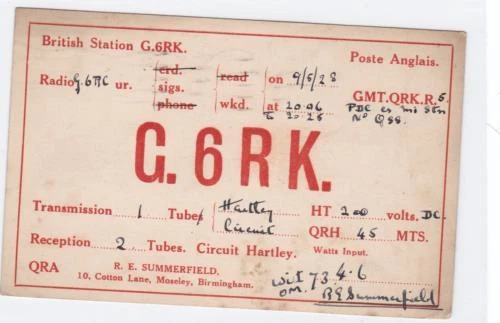 British Station G.6RK.
Poste Anglais.
Radio G.6 ur. crd. sigs. phone read wkd. on 9/5/28
at 20.06
20.25
GMT.QRK.R5.
PDC es mi Stn
No QSS.
G. 6 R K.
Transmission 1 Tube Hartley Circuit HT 200 volts. DC.
QRH 45 MTS.
Reception 2 Tubes. Circuit Hartley. Watts Input.
QRA R. E. SUMMERFIELD.
10, Cotton Lane, Moseley, Birmingham.
73 4.6
OM. R E Summerfield